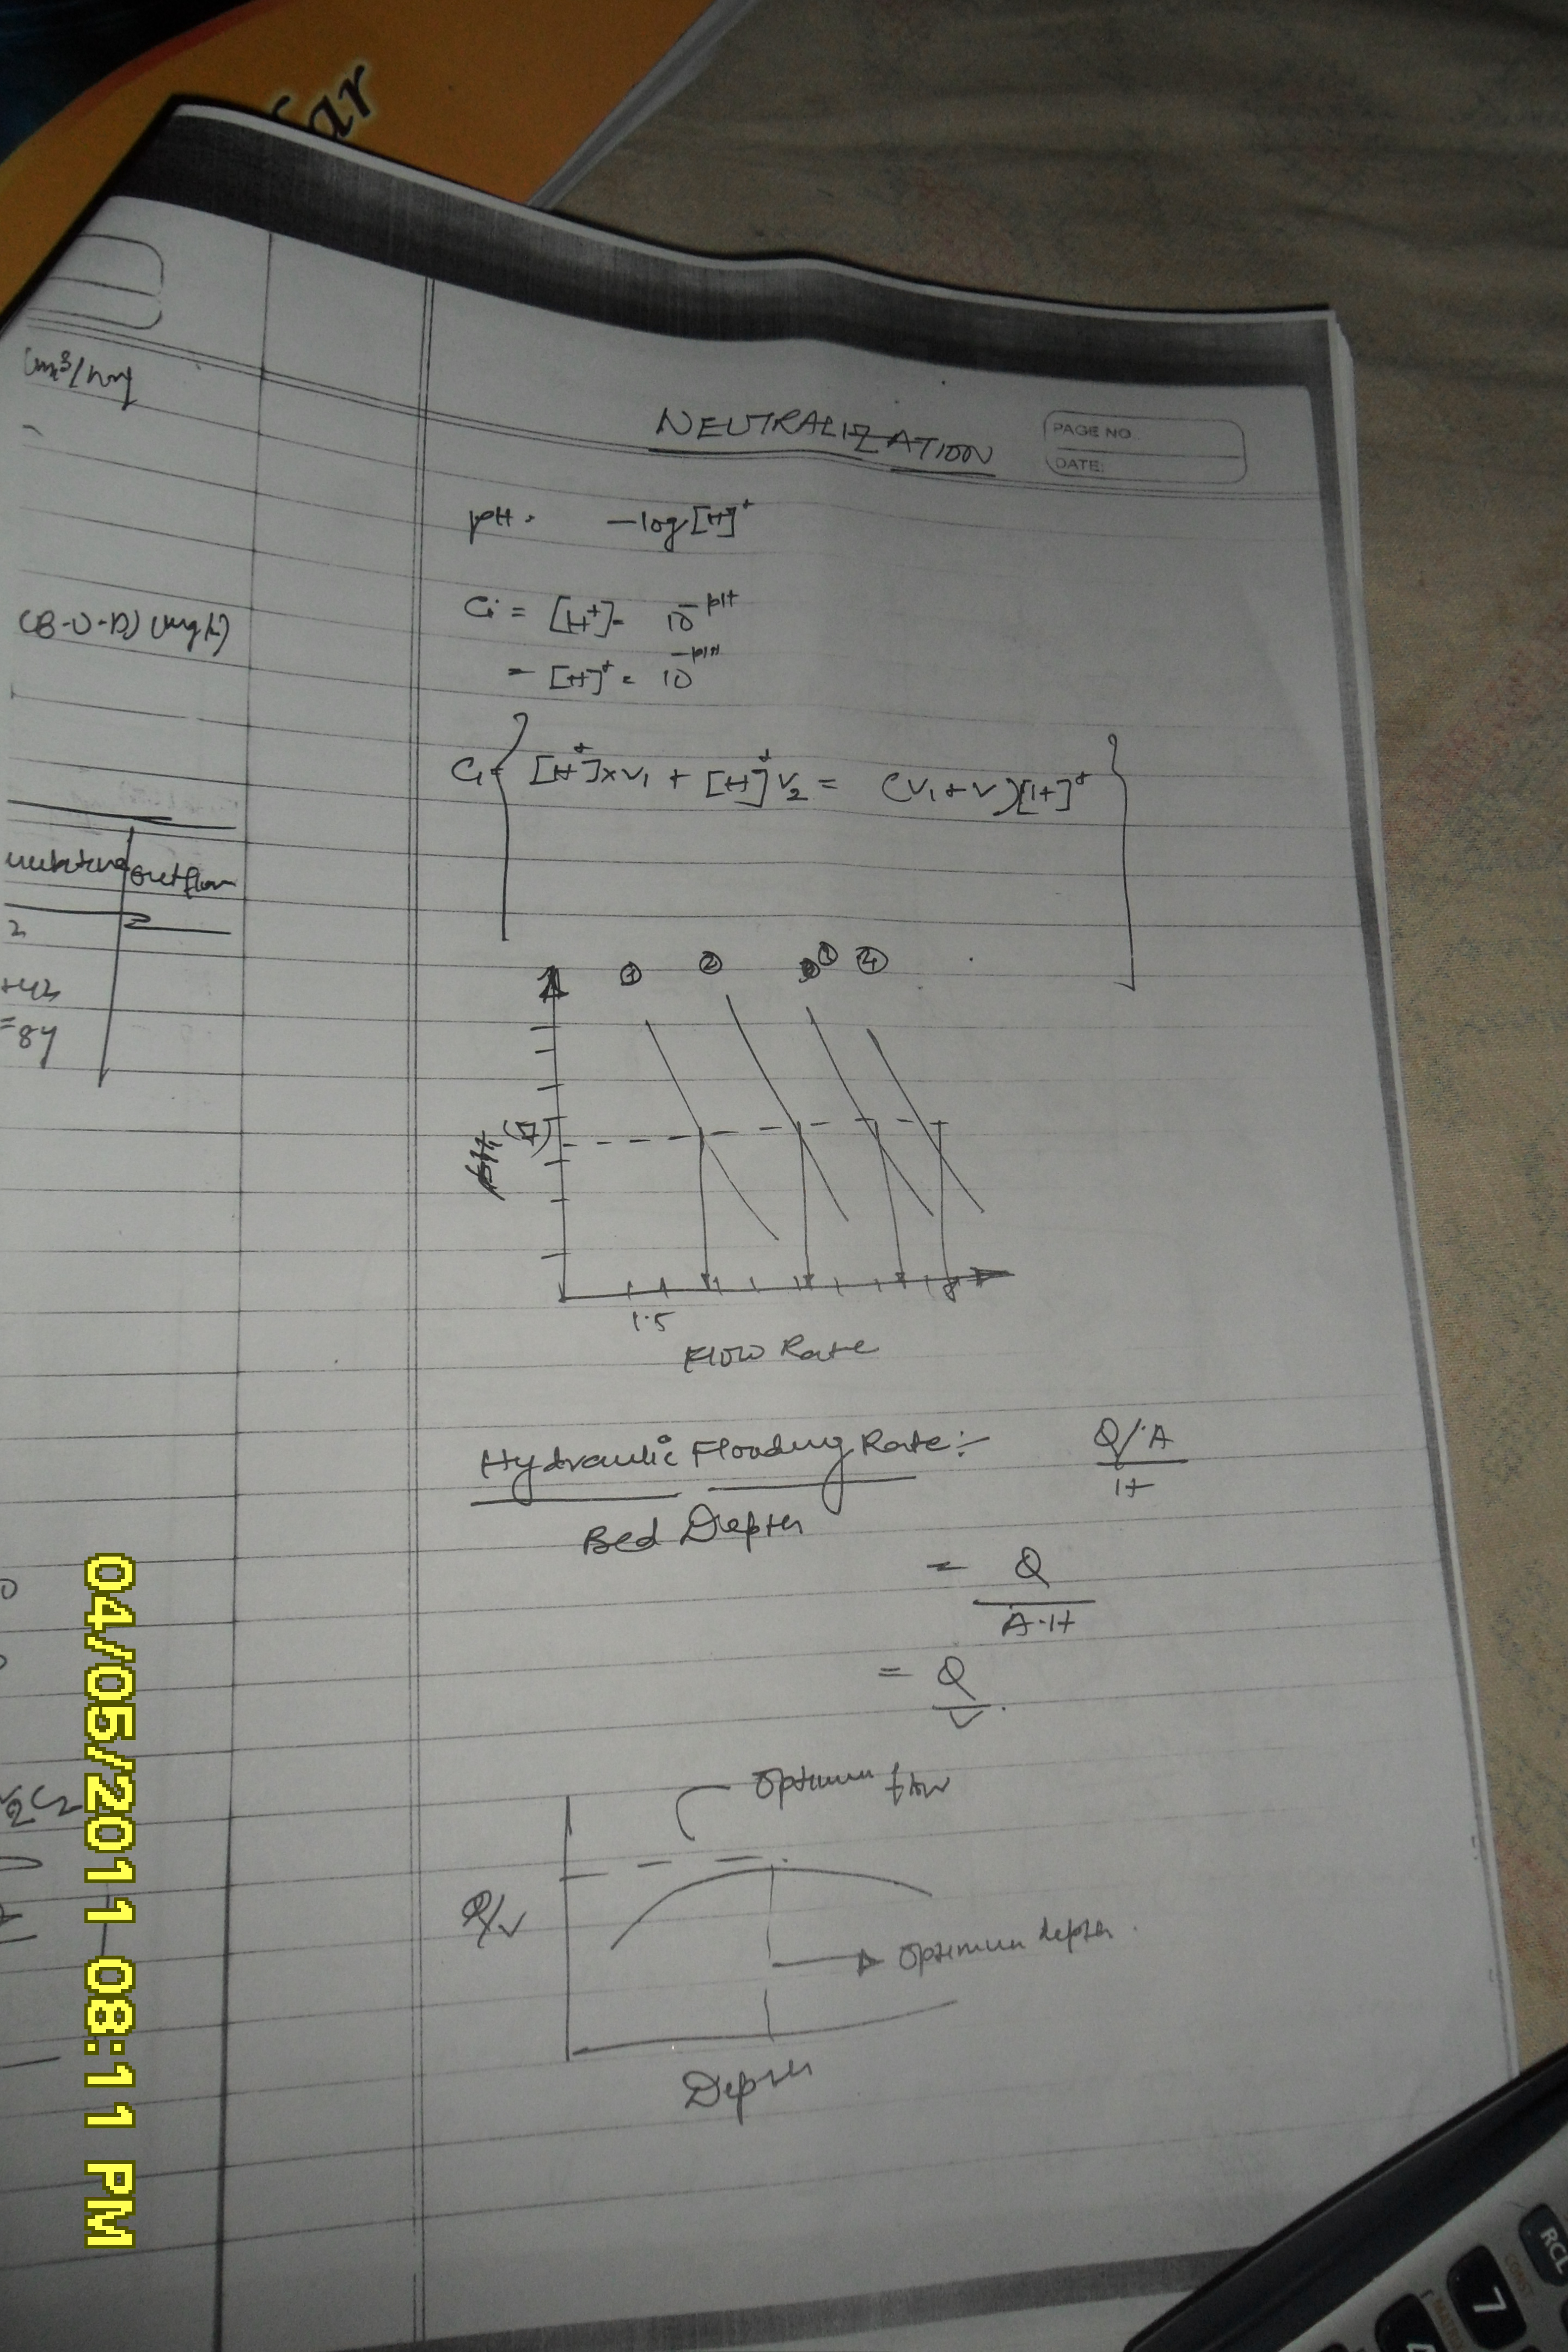 ar
(m³/hr)
(B-O-D) (mg/L)
outflow
2
+42
=84
V2C2
NEUTRALIZATION
PAGE NO.
DATE:
pH = -log[H]⁺
Ci = [H⁺] = 10^-pH
= [H]⁺ = 10^-pH
Ci = { [H⁺]×V₁ + [H]⁺V₂ = (V₁+V)[H]⁺ }
① ② ③ ④
pH (7)
1.5
Flow Rate
Hydraulic Flooding Rate:- Q/A
Bed Depth H
= Q
A·H
= Q
V
Optimum flow
Q/V
Optimum depth.
Depth
04/05/2011 08:11 PM
RCL
CONST
7